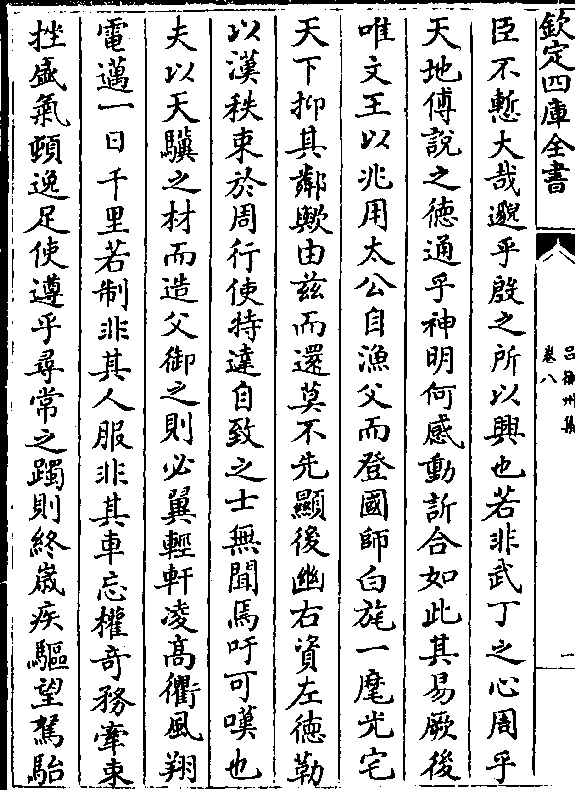 欽定四庫全書
吕衡州集
卷八
一
臣不慙大哉邈乎殷之所以興也若非武丁之心周乎
天地傅說之德通乎神明何感動訢合如此其易厥後
唯文王以兆用太公自漁父而登國師白旄一麾光宅
天下抑其鄰歟由兹而還莫不先顯後幽右資左德勒
以漢秩束於周行使特達自致之士無聞焉吁可嘆也
夫以天驥之材而造父御之則必翼輕軒凌高衢風翔
電邁一日千里若制非其人服非其車忘權奇務牽束
挫盛氣頓逸足使遵乎尋常之躅則終嵗疾驅望駑駘